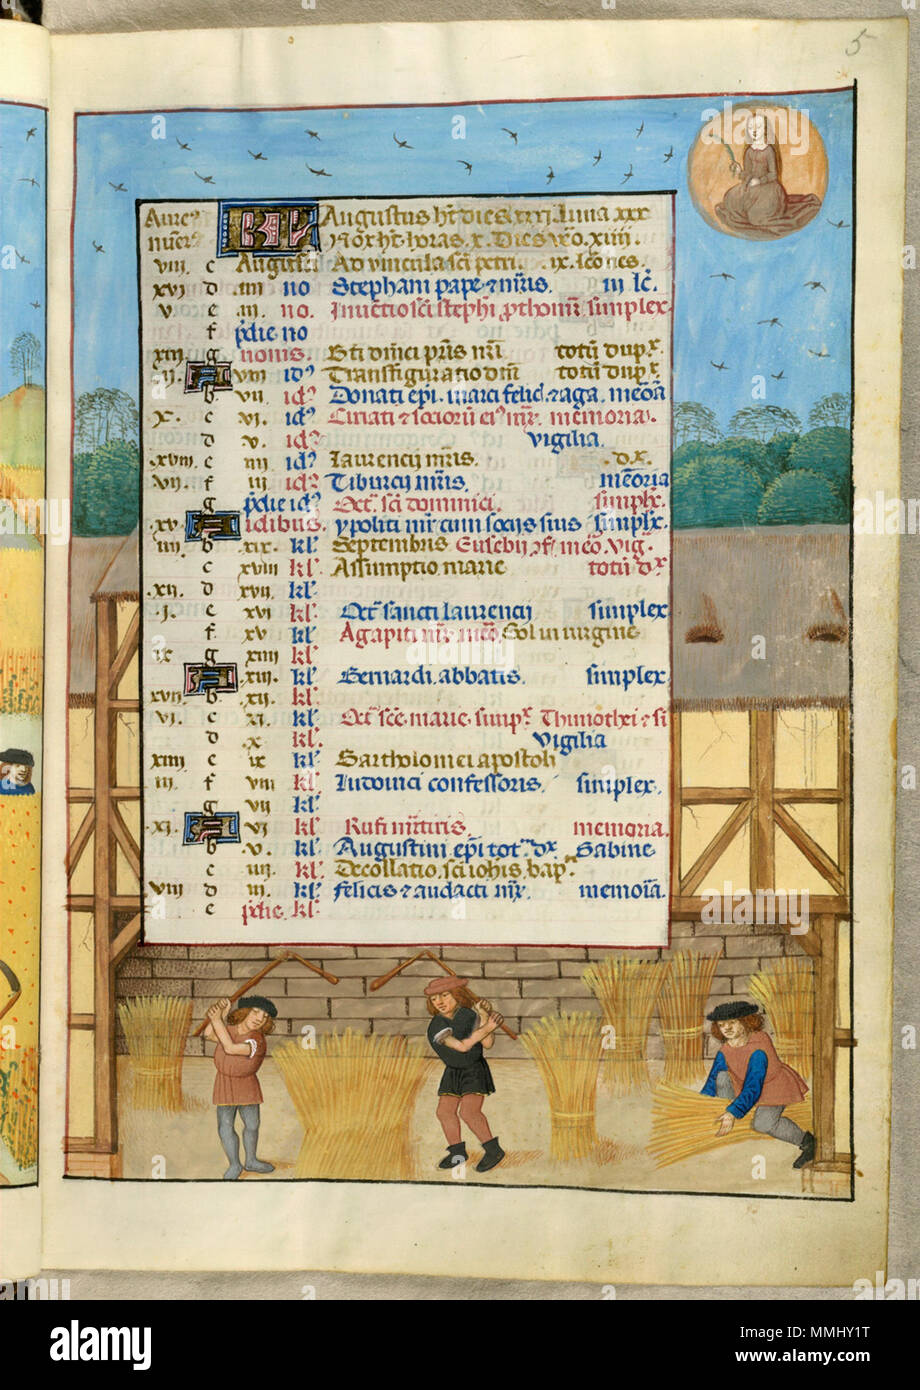 5
Aure9 KL Augustus ht dies xxxj. luna xxx
numer9 Nox ht horas x. Dies vo xiiij.
viii c Augusti Ad vincula sci petri. ix. lcones.
xvi d iiii no Stephani pape & mris. iii lc.
v e iii. no. Inuetio sci stephi prothomr simplex
f pdie no
xiii g nonis. Bti dnici pris nri totu dupx.
.ij. A viii id9 Transfiguratio dni totu dupx.
b vii. id9 Donati epi. marci felici & aga. meoa
x. c vi. id9 Ciriaci & socioru ei9 mr. memoria.
d v. id9 Vigilia.
.xviii c iiii id9 Laurencij mris. .dx.
.vii. f iii id9 Tiburcij mris. memoria
g pdie id9 Oct. sci dominici. simplx.
.xv. A idibus. ypoliti mr cum socijs suis simplx.
iiii b .xix. kl. Septembris Eusebij 9f. meo. Vig.
c xviii kl. Assumptio marie totu dx
.xii. d xvii. kl.
.j. e xvi kl. Oct. sancti laurencij simplex
f. xv kl. Agapiti mr. meo. Sol in uirgine
ix g xiiii kl.
A .xiii. kl. Bernardi. abbatis. simplex
xvii b. .xii. kl.
vi. c xi. kl. Oct. sce. marie. simpx. Thimothei & si
d .x kl. Vigilia
xiiii e ix kl. Bartholomei apostoli
iii f viii kl. Ludouici confessoris. simplex.
g vii kl.
.xi. A vi kl. Rufi mrtiris. memoria.
b v. kl. Augustini epi tot. dx Sabine
c iiii. kl. Decollatio. sci iohis bapt.
viii d iii. kl. felicis & audacti mr. memoia.
e pdie. kl.
alamy
Image ID: MMHY1T
www.alamy.com